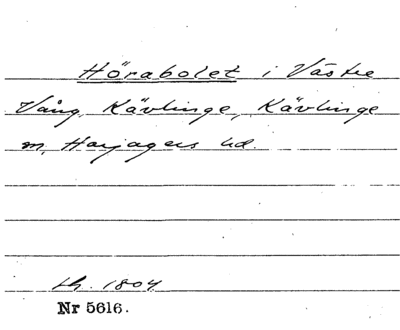 Hörabolet i Västre
Vång, Kävlinge, Kävlinge
m, Harjagers hd.
lh. 1804
Nr 5616.